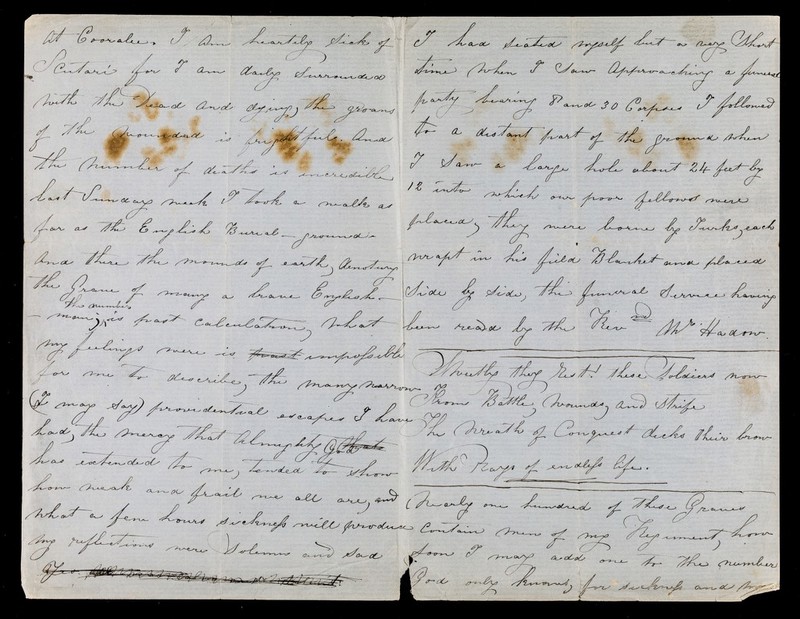 at Cooralie. I am heartily sick of
Scutari for I am daily surrounded
with the dead and dying, the groans
of the wounded is frightful. And
the number of deaths is incredible
last Sunday week I took a walk as
far as the English Burial-ground-
And there the mounds of earth, denoting
the Grave of many a brave English-
the number
-man, is past calculation, What
my feelings were is past impossible
for me to describe, the many narrow
(I may say) providential escapes I have
had, the mercy that Almighty God
has extended to me, tended to show
how weak and frail we all are, and
what a few hours sickness will produce
my reflections were Solemn and Sad
I had seated myself but a very Short
time when I Saw Approaching a funeral
party bearing 8 and 30 Corpses I followed
to a distant part of the ground when
I Saw a large hole about 24 feet by
12 into which our poor fellows were
placed, they were borne by Turks, each
wrapt in his field Blanket and placed
Side by Side, the funeral Service having
been read by the Revd Mr Hadow.
Sweetly they Rest! these Soldiers now
From Battle, Wounds, and Strife
The Wreath of Conquest decks their brow
With Rays of endless life.
Nearly one hundred of these Graves
Contain men of my Regiment, how
Soon I may add one to the number
God only knows, for sickness and